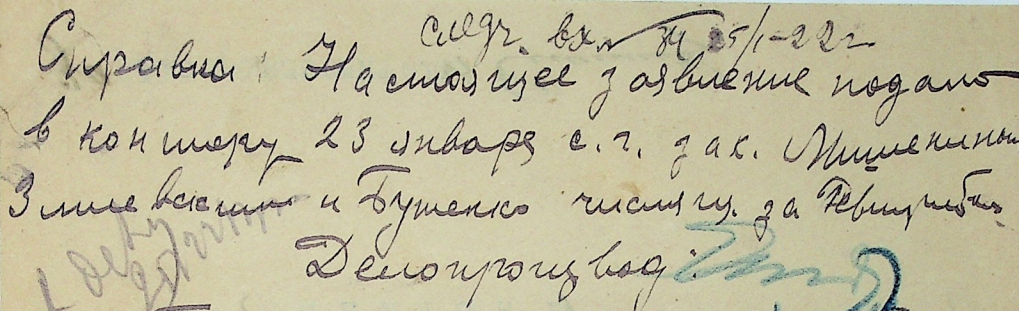 следч. вх. № 34 25/I-22 г
Справка: Настоящее заявление подано
в контору 23 января с. г. зак. Мишениным
Змиевским и Бутенко числящ. за Ревтрибун.
Делопроизвод:
К делу